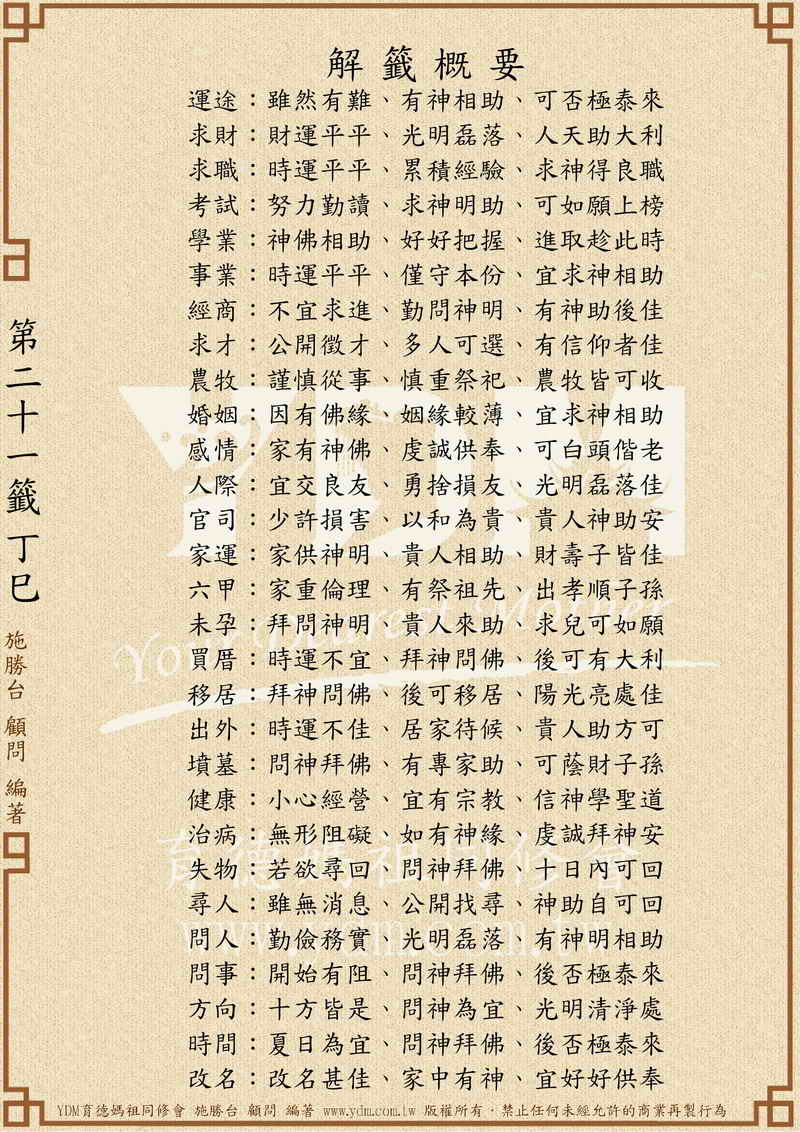 解籤概要
運途：雖然有難、有神相助、可否極泰來
求財：財運平平、光明磊落、人天助大利
求職：時運平平、累積經驗、求神得良職
考試：努力勤讀、求神明助、可如願上榜
學業：神佛相助、好好把握、進取趁此時
事業：時運平平、僅守本份、宜求神相助
經商：不宜求進、勤問神明、有神助後佳
求才：公開徵才、多人可選、有信仰者佳
農牧：謹慎從事、慎重祭祀、農牧皆可收
婚姻：因有佛緣、姻緣較薄、宜求神相助
感情：家有神佛、虔誠供奉、可白頭偕老
人際：宜交良友、勇捨損友、光明磊落佳
官司：少許損害、以和為貴、貴人神助安
家運：家供神明、貴人相助、財壽子皆佳
六甲：家重倫理、有祭祖先、出孝順子孫
未孕：拜問神明、貴人來助、求兒可如願
買厝：時運不宜、拜神問佛、後可有大利
移居：拜神問佛、後可移居、陽光亮處佳
出外：時運不佳、居家待候、貴人助方可
墳墓：問神拜佛、有專家助、可蔭財子孫
健康：小心經營、宜有宗教、信神學聖道
治病：無形阻礙、如有神緣、虔誠拜神安
失物：若欲尋回、問神拜佛、十日內可回
尋人：雖無消息、公開找尋、神助自可回
問人：勤儉務實、光明磊落、有神明相助
問事：開始有阻、問神拜佛、後否極泰來
方向：十方皆是、問神為宜、光明清淨處
時間：夏日為宜、問神拜佛、後否極泰來
改名：改名甚佳、家中有神、宜好好供奉
第二十一籤 丁巳
施勝台 顧問 編著
YDM
Your Dearest Mother
育德媽祖同修會
www.ydm.com.tw
YDM育德媽祖同修會 施勝台 顧問 編著 www.ydm.com.tw 版權所有．禁止任何未經允許的商業再製行為